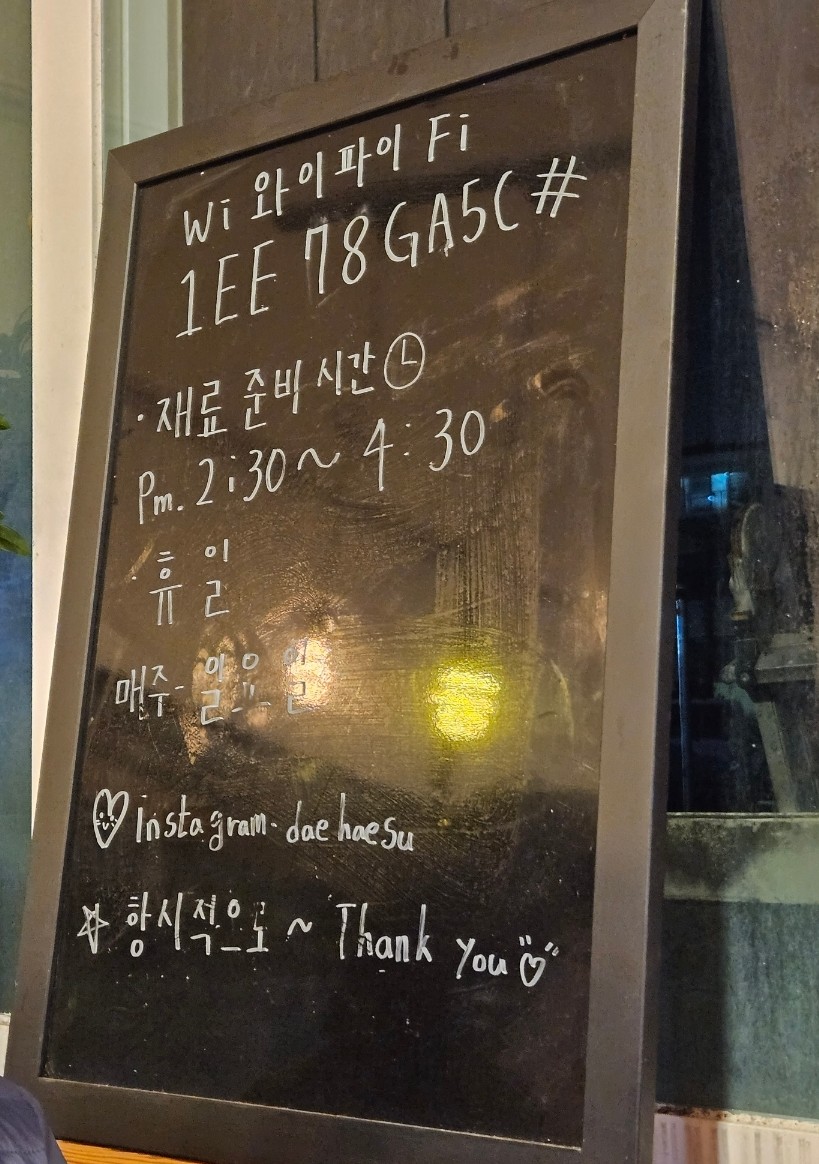 Wi 와이파이 Fi
1EE 78GA5C#
· 재료 준비 시간
Pm. 2:30~ 4:30
· 휴 일
매주- 일요일
Instagram- daehaesu
항시적으로 ~ Thank you